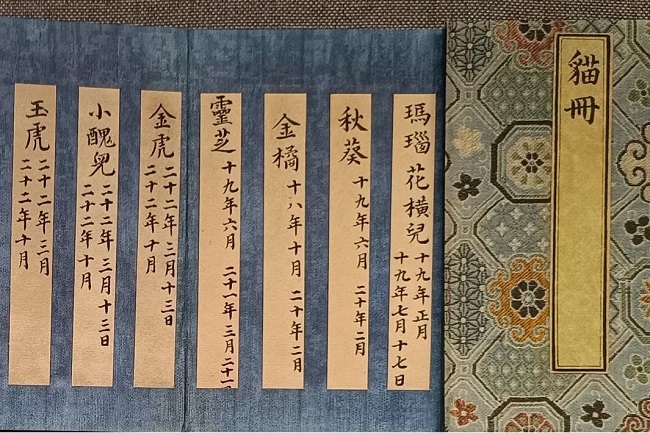 貓冊
瑪瑙 花橫兒 十九年正月
十九年七月十七日
秋葵 十九年六月 二十年二月
金橘 十八年十月 二十年二月
靈芝 十九年六月 二十一年三月二十一
金虎 二十二年三月十三日
二十二年十月
小醜兒 二十二年三月十三日
二十二年十月
玉虎 二十二年三月
二十二年十月